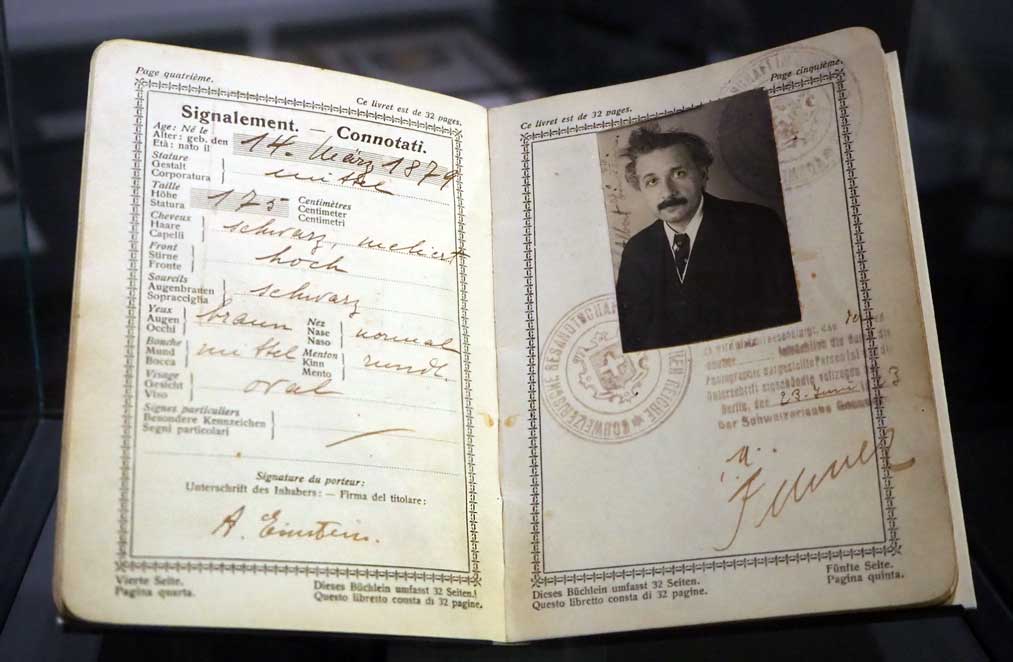 Page quatrième.
Ce livret est de 32 pages.
Signalement. — Connotati.
Age: Né le
Alter: geb. den
Età: nato il
14. März 1879
Stature
Gestalt
Corporatura
mittel
Taille
Höhe
Statura
175
Centimètres
Centimeter
Centimetri
Cheveux
Haare
Capelli
schwarz, meliert
Front
Stirne
Fronte
hoch
Sourcils
Augenbrauen
Sopracciglia
schwarz
Yeux
Augen
Occhi
braun
Nez
Nase
Naso
normal
Bouche
Mund
Bocca
mittel
Menton
Kinn
Mento
rundl.
Visage
Gesicht
Viso
oval
Signes particuliers
Besondere Kennzeichen
Segni particolari
Signature du porteur:
Unterschrift des Inhabers: — Firma del titolare:
A. Einstein.
Vierte Seite.
Pagina quarta.
Dieses Büchlein umfasst 32 Seiten.
Questo libretto consta di 32 pagine.
Page cinquième.
Ce livret est de 32 pages.
SCHWEIZERISCHE GESANDTSCHAFT
REICHE
Photographie dargestellte Person
Unterschrift eigenhändig vollzogen
Berlin, den 23. Juni
Der Schweizerische Gesandte
Dieses Büchlein umfasst 32 Seiten.
Questo libretto consta di 32 pagine.
Fünfte Seite.
Pagina quinta.